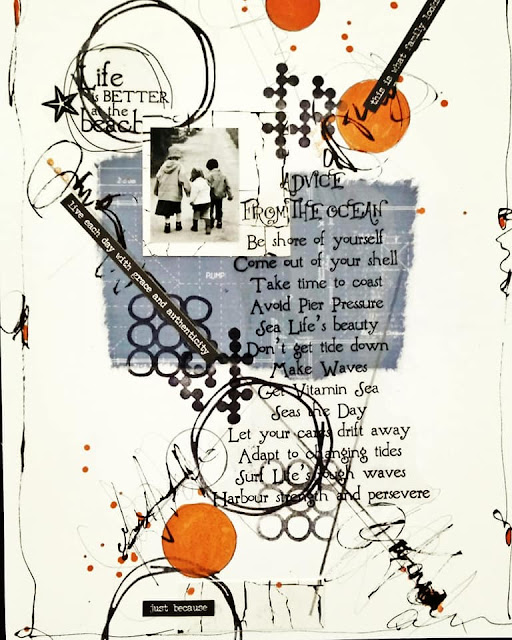 this is what family looks
Life
is BETTER
at the
beach
live each day with grace and authenticity
RUMP
ADVICE
FROM THE OCEAN
Be shore of yourself
Come out of your shell
Take time to coast
Avoid Pier Pressure
Sea Life's beauty
Don't get tide down
Make Waves
Get Vitamin Sea
Seas the Day
Let your cares drift away
Adapt to changing tides
Surf Life's rough waves
Harbour strength and persevere
just because